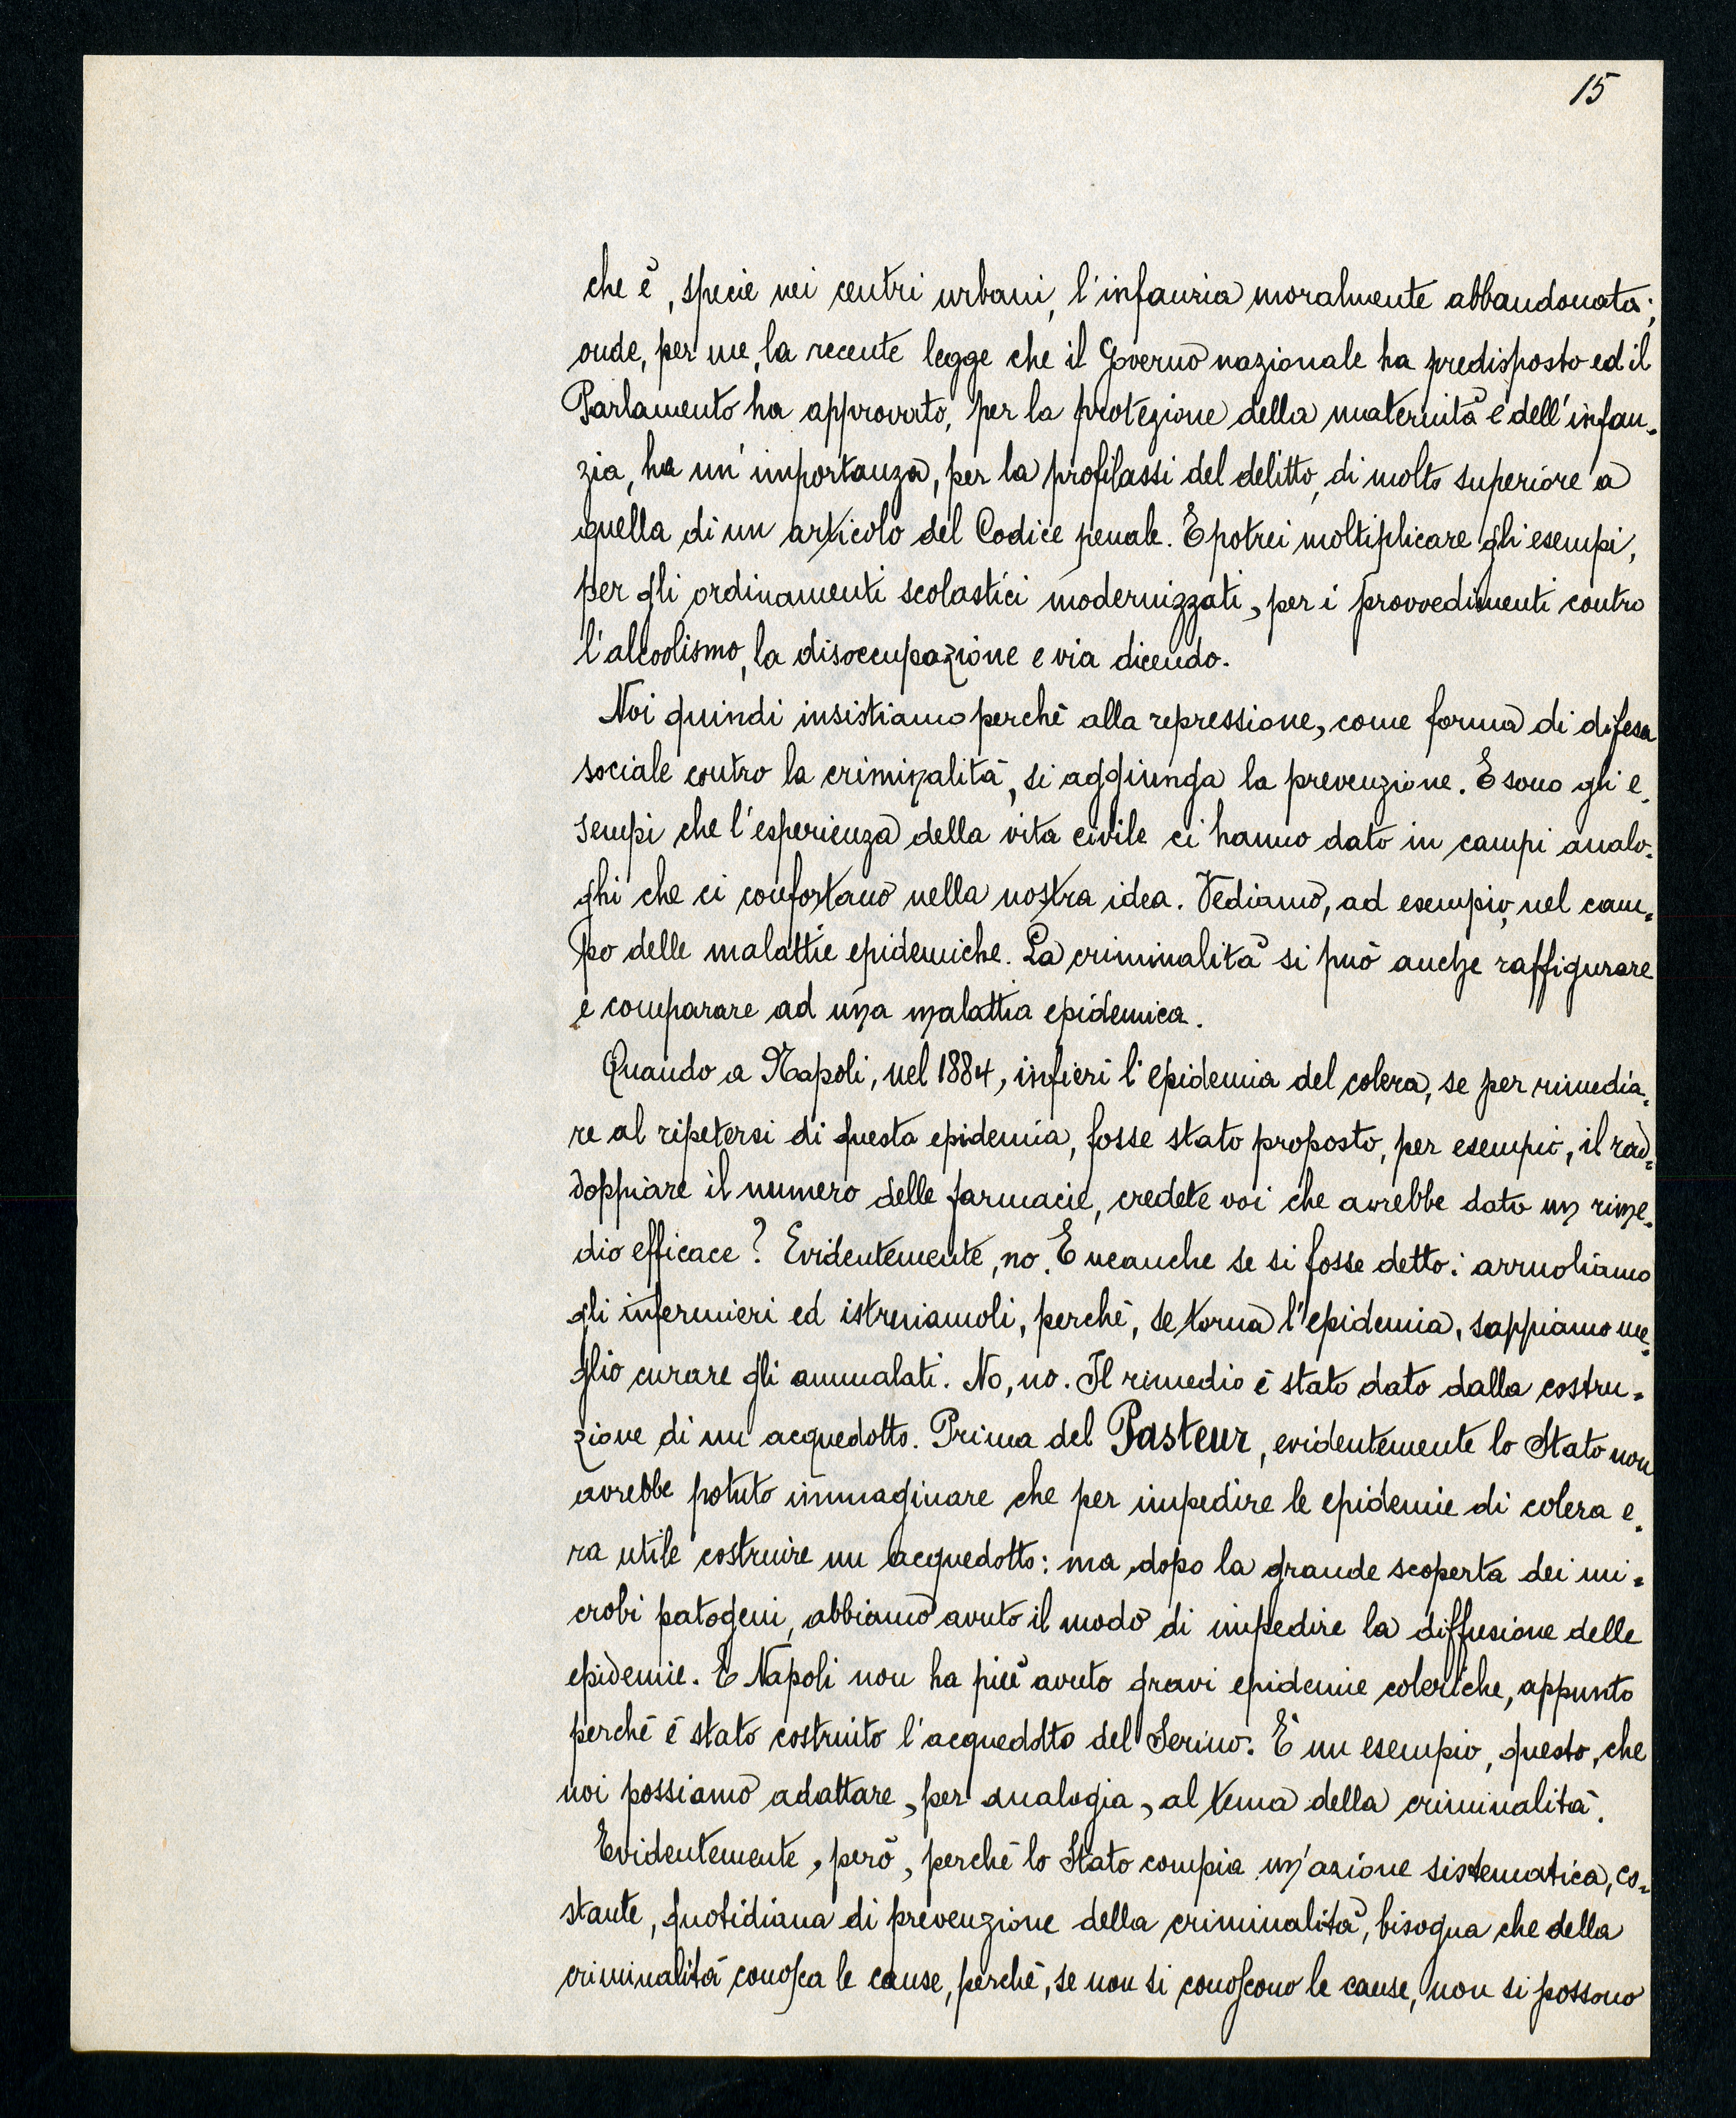 15
che è, specie nei centri urbani, l'infanzia moralmente abbandonata;
onde, per me, la recente legge che il Governo nazionale ha predisposto ed il
Parlamento ha approvato, per la protezione della maternità e dell'infan-
zia, ha un'importanza, per la profilassi del delitto, di molto superiore a
quella di un articolo del Codice penale. E potrei moltiplicare gli esempi,
per gli ordinamenti scolastici modernizzati, per i provvedimenti contro
l'alcoolismo, la disoccupazione e via dicendo.
Noi quindi insistiamo perchè alla repressione, come forma di difesa
sociale contro la criminalità, si aggiunga la prevenzione. E sono gli e-
sempi che l'esperienza della vita civile ci hanno dato in campi analo-
ghi che ci confortano nella nostra idea. Vediamo, ad esempio, nel cam-
po delle malattie epidemiche. La criminalità si può anche raffigurare
e comparare ad una malattia epidemica.
Quando a Napoli, nel 1884, infierì l'epidemia del colera, se per rimedia-
re al ripetersi di questa epidemia, fosse stato proposto, per esempio, il rad-
doppiare il numero delle farmacie, credete voi che avrebbe dato un rime-
dio efficace? Evidentemente, no. E neanche se si fosse detto: arruoliamo
gli infermieri ed istruiamoli, perchè, se torna l'epidemia, sappiamo me-
glio curare gli ammalati. No, no. Il rimedio è stato dato dalla costru-
zione di un acquedotto. Prima del Pasteur, evidentemente lo Stato non
avrebbe potuto immaginare che per impedire le epidemie di colera e-
ra utile costruire un acquedotto: ma dopo la grande scoperta dei mi-
crobi patogeni, abbiamo avuto il modo di impedire la diffusione delle
epidemie. E Napoli non ha più avuto gravi epidemie coleriche, appunto
perchè è stato costruito l'acquedotto del Serino. È un esempio, questo, che
noi possiamo adattare, per analogia, al tema della criminalità.
Evidentemente, però, perchè lo Stato compia un'azione sistematica, co-
stante, quotidiana di prevenzione della criminalità, bisogna che della
criminalità conosca le cause, perchè, se non si conoscono le cause, non si possono